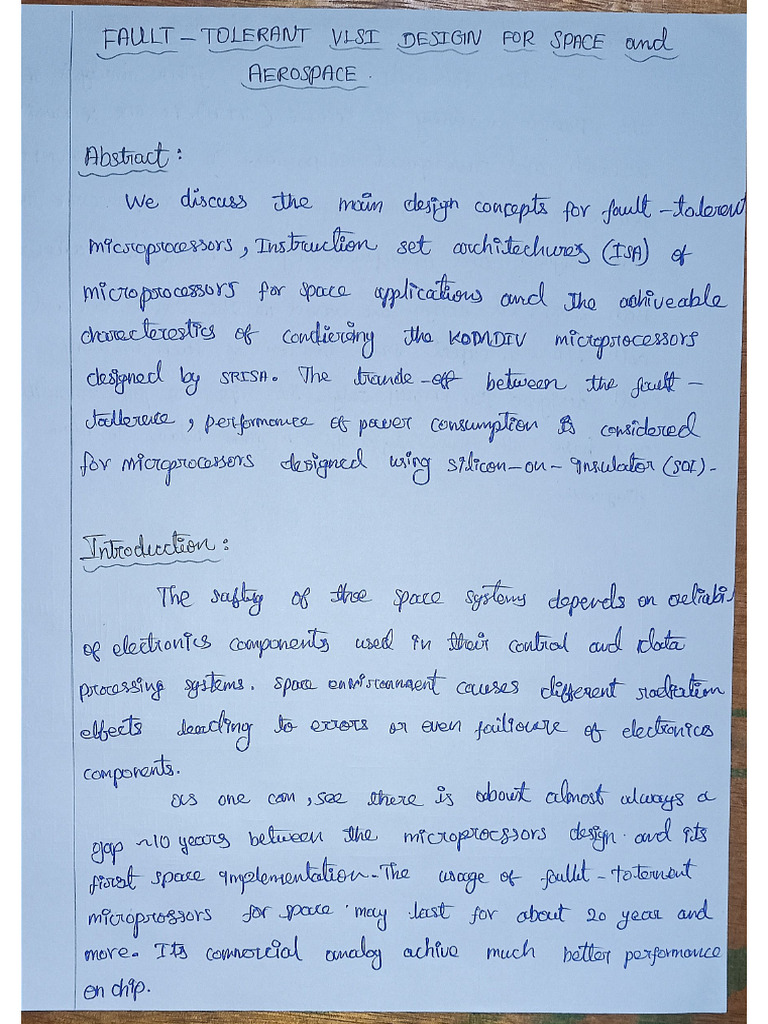 FAULT-TOLERANT VLSI DESIGN FOR SPACE and
AEROSPACE.
Abstract:
We discuss the main design concepts for fault-tolerent
microprocessors, Instruction set architechures (ISA) of
microprocessors for space applications and the achiveable
characterestics of condiering the KOMDIV microprocessors
designed by SRISA. The trande-off between the fault-
tollerence, performance of power consumption is considered
for microprocessors designed using silicon-on-insulator (SOI).
Introduction:
The safty of thee space systems depends on reliabi
of electronics components used in their control and data
processing systems. Space environment causes different radiation
effects leading to errors or even failioure of electronics
components.
As one can, see there is about almost always a
gap ~10 years between the microprocssors design and its
first space implementation. The usage of fault-
microprossors for space may last for about 20 year and
more. Its commercial analog achive much better performance
on chip.